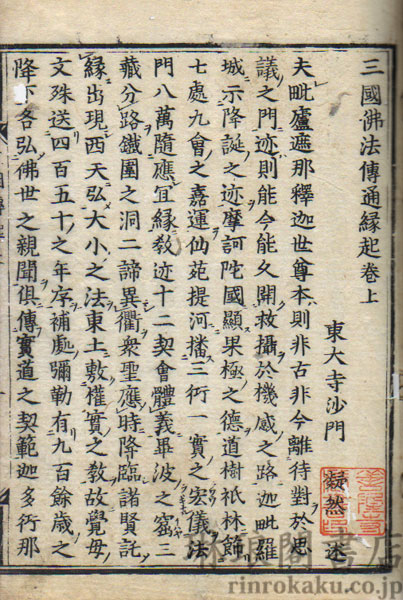 三國佛法傳通縁起卷上
東大寺沙門
凝然 述
夫毗廬遮那釋迦世尊本則非古非今離待對於思
議之門迹則能今能久開救攝於機感之路迦毗羅
城示降誕之迹摩訶陀國顯果極之德道樹祇林餝
七處九會之嘉運仙苑提河播三行一實之宏儀法
門八萬隨應宜縁敎迹十二契會體義畢波之窟三
藏分路鐵圍之洞二諦異衢衆聖應時降臨諸賢託
縁出現西天弘大小之法東土敷權實之敎故覺母
文殊送四百五十之年序補處彌勒有九百餘歳之
降下各弘佛世之親聞俱傳實道之契範迦多衍那
琳琅閣書店
rinrokaku.co.jp